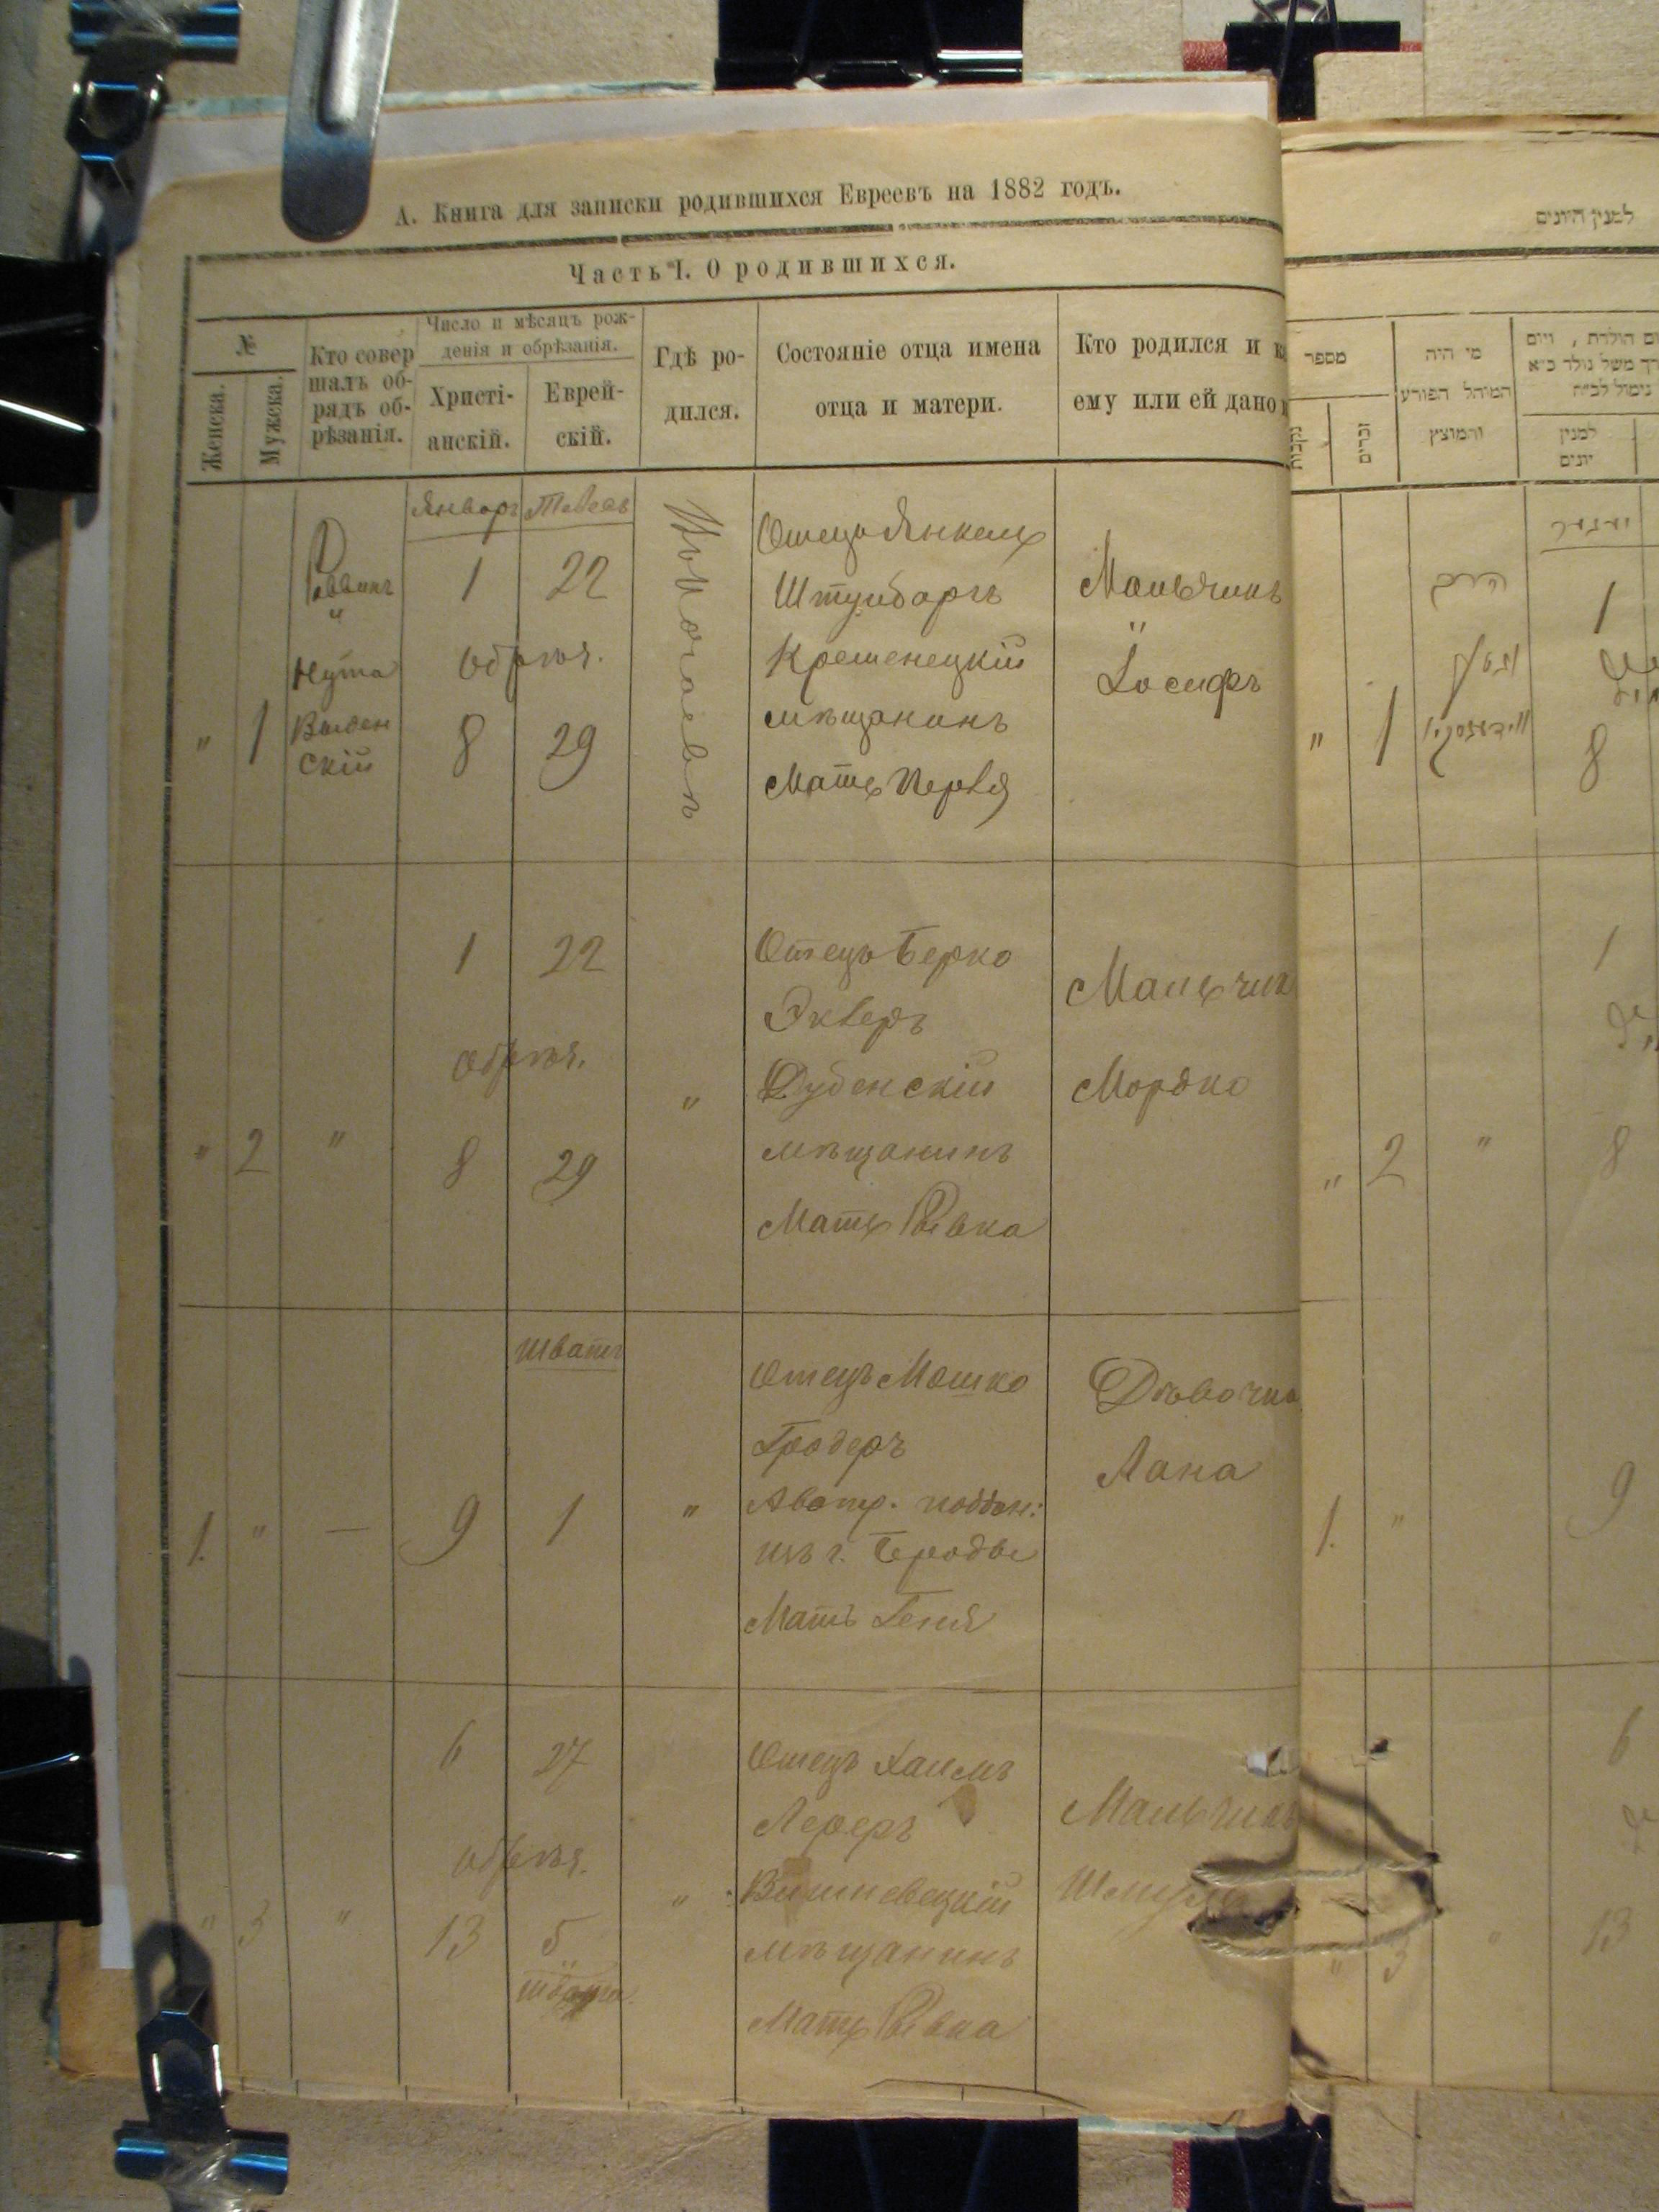 А. Книга для записки родившихся Евреевъ на 1882 годъ.
Часть I. О родившихся.
№
Женска.
Мужска.
Кто совер
шалъ об-
рядъ об-
рѣзанія.
Число и мѣсяцъ рож-
денія и обрѣзанія.
Христі-
анскій.
Еврей-
скій.
Гдѣ ро-
дился.
Состояніе отца имена
отца и матери.
Кто родился и
ему или ей дано
"
1
Раввинъ
"
Нута
1
22
обрѣз.
8
29
Отецъ Янкель
Кременецкій
мѣщанинъ
Мать
Мальчикъ
"
Іосифъ
"
2
"
1
22
обрѣз.
8
29
"
Отецъ Берко
Экверъ
Дубенскій
мѣщанинъ
Мать Ривка
Мальчик
Мордко
1.
"
—
9
Шватъ
1
"
Отецъ Мошко
Гродеръ
Австр. поддан:
изъ г. Броды
Мать Геня
Дѣвочка
Хана
"
3
"
6
27
обрѣз.
13
5
"
"
Отецъ Хаимъ
Лереръ
Вишневецкій
мѣщанинъ
Мать Ривка
Мальчикъ
למנין היונים
מספר
זכרים
מי היה
המוהל הפורע
והמוצץ
למנין
יונים
"
1
1
8
"
2
"
1
8
1.
"
9
"
3
"
6
13